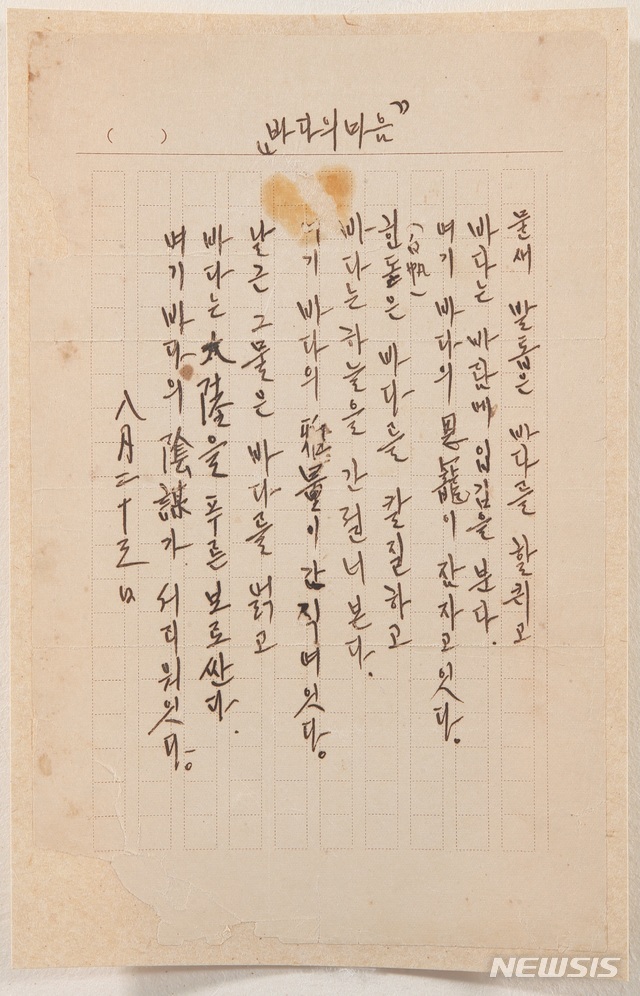 "바다의마음"
( )
물새 발톱은 바다를 할퀴고
바다는 바람에 입김을 분다.
여기 바다의 恩寵이 잠자고잇다.
흰돛(白帆)은 바다를 칼질하고
바다는 하늘을 간질너본다.
여기 바다의 雅量이 간직여잇다.
날근 그물은 바다를 얽고
바다는 大陸을 푸른 보로싼다.
여기 바다의 陰謀가 서리워잇다.
八月二十三日
NEWSIS